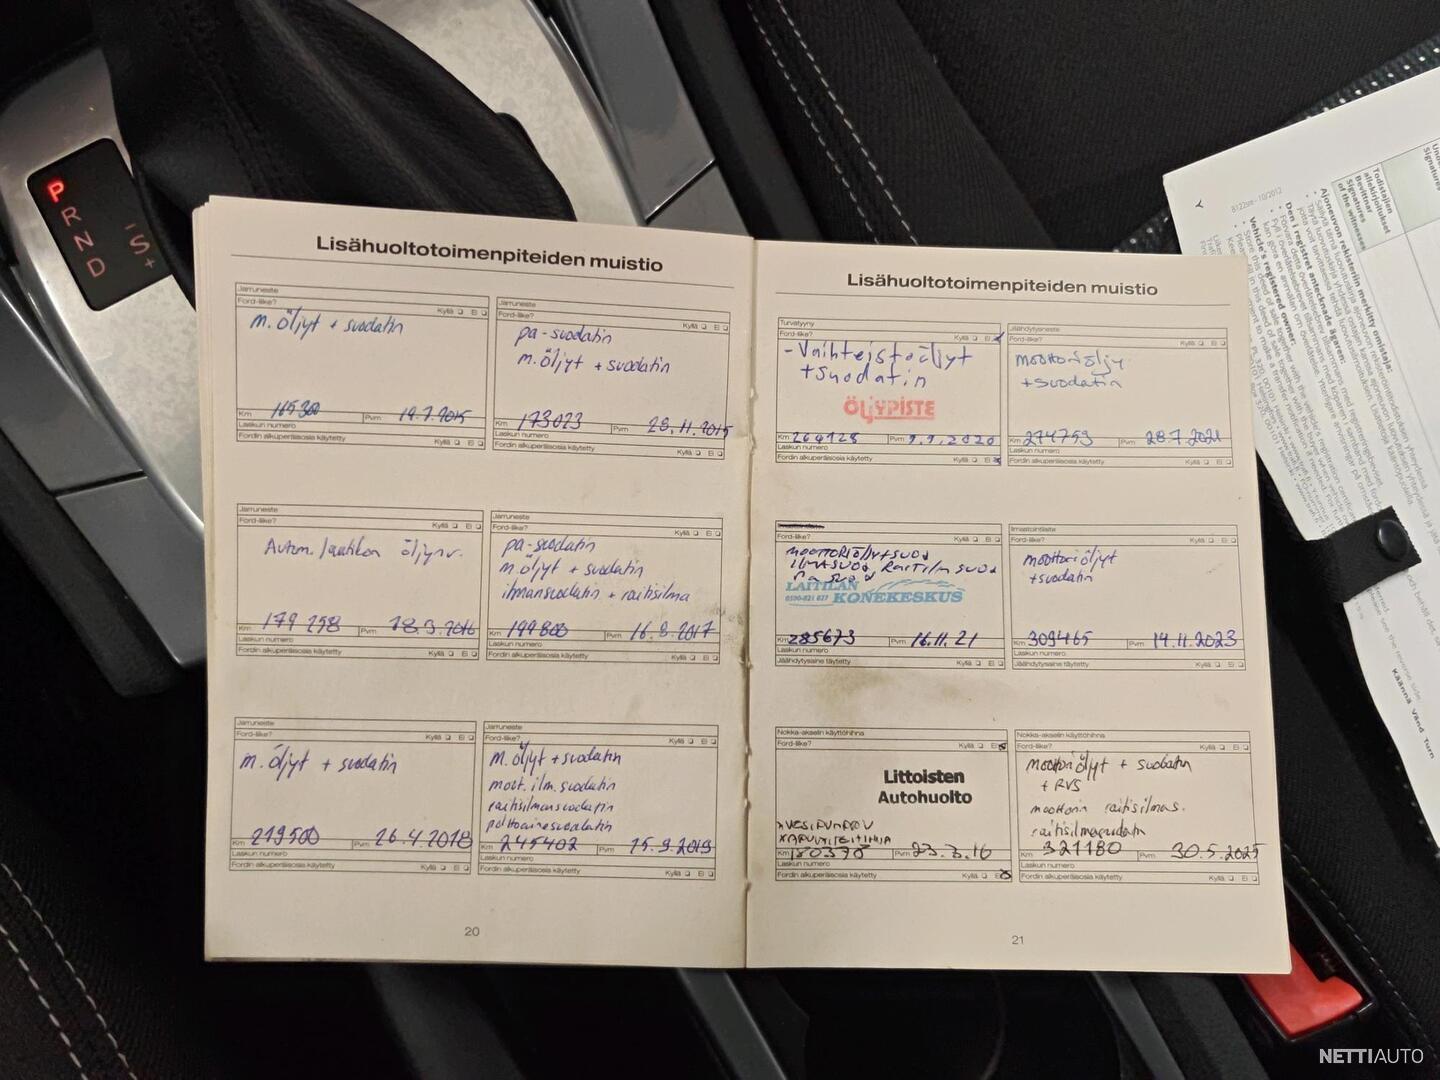 P
R
N
D
-
S
+
Lisähuoltotoimenpiteiden muistio
Jarruneste
Ford-liike?
Kyllä ❏ Ei ❏
m. öljyt + suodatin
Km 165300 Pvm 19.7.2015
Laskun numero
Fordin alkuperäisosia käytetty Kyllä ❏ Ei ❏
Jarruneste
Ford-liike?
Kyllä ❏ Ei ❏
pa-suodatin
m. öljyt + suodatin
Km 173023 Pvm 28.11.2015
Laskun numero
Fordin alkuperäisosia käytetty Kyllä ❏ Ei ❏
Jarruneste
Ford-liike?
Kyllä ❏ Ei ❏
Autom. laatikon öljynv.
Km 179258 Pvm 18.3.2016
Laskun numero
Fordin alkuperäisosia käytetty Kyllä ❏ Ei ❏
Jarruneste
Ford-liike?
Kyllä ❏ Ei ❏
pa-suodatin
m. öljyt + suodatin
ilmansuodatin + raitisilma
Km 199800 Pvm 16.8.2017
Laskun numero
Fordin alkuperäisosia käytetty Kyllä ❏ Ei ❏
Jarruneste
Ford-liike?
Kyllä ❏ Ei ❏
m. öljyt + suodatin
Km 219500 Pvm 26.4.2018
Laskun numero
Fordin alkuperäisosia käytetty Kyllä ❏ Ei ❏
Jarruneste
Ford-liike?
Kyllä ❏ Ei ❏
m. öljyt + suodatin
moot. ilm. suodatin
raitisilmansuodatin
polttoainesuodatin
Km 245402 Pvm 15.9.2019
Laskun numero
Fordin alkuperäisosia käytetty Kyllä ❏ Ei ❏
20
Lisähuoltotoimenpiteiden muistio
Turvatyyny
Ford-liike?
Kyllä ❏ Ei
- Vaihteistoöljyt
+ suodatin
ÖLJYPISTE
Km 264128 Pvm 9.9.2020
Laskun numero
Fordin alkuperäisosia käytetty Kyllä ❏ Ei
Jäähdytysneste
Ford-liike?
Kyllä ❏ Ei ❏
moottoriöljy
+ suodatin
Km 274793 Pvm 28.7.2021
Laskun numero
Fordin alkuperäisosia käytetty Kyllä ❏ Ei ❏
Ford-liike?
Kyllä ❏ Ei ❏
MOOTTORIÖLJY+SUOD
ILMASUOD RAITILM SUOD
PA SUOD
LAITILAN
KONEKESKUS
Km 285673 Pvm 16.11.21
Laskun numero
Jäähdytysaine täytetty Kyllä ❏ Ei ❏
Ilmastointilaite
Ford-liike?
Kyllä ❏ Ei ❏
moottoriöljyt
+ suodatin
Km 309465 Pvm 14.11.2023
Laskun numero
Jäähdytysaine täytetty Kyllä ❏ Ei ❏
Nokka-akselin käyttöhihna
Ford-liike?
Kyllä ❏ Ei
Littoisten
Autohuolto
* VESIPUMPPU
Km 180370 Pvm 23.3.16
Laskun numero
Fordin alkuperäisosia käytetty Kyllä ❏ Ei
Nokka-akselin käyttöhihna
Ford-liike?
Kyllä ❏ Ei ❏
moottoriöljyt + suodatin
+ RVS
moottorin raitisilmas.
raitisilmasuodatin
Km 321180 Pvm 30.5.2025
Laskun numero
Fordin alkuperäisosia käytetty Kyllä ❏ Ei ❏
21
Todistajien
allekirjoitukset
Bevittnar
Signatures
of the witnesses
Ajoneuvon rekisteriin merkitty omistaja:
Den i registret antecknade ägaren:
Vehicle's registered owner:
Käännä Vänd Turn
NETTIAUTO